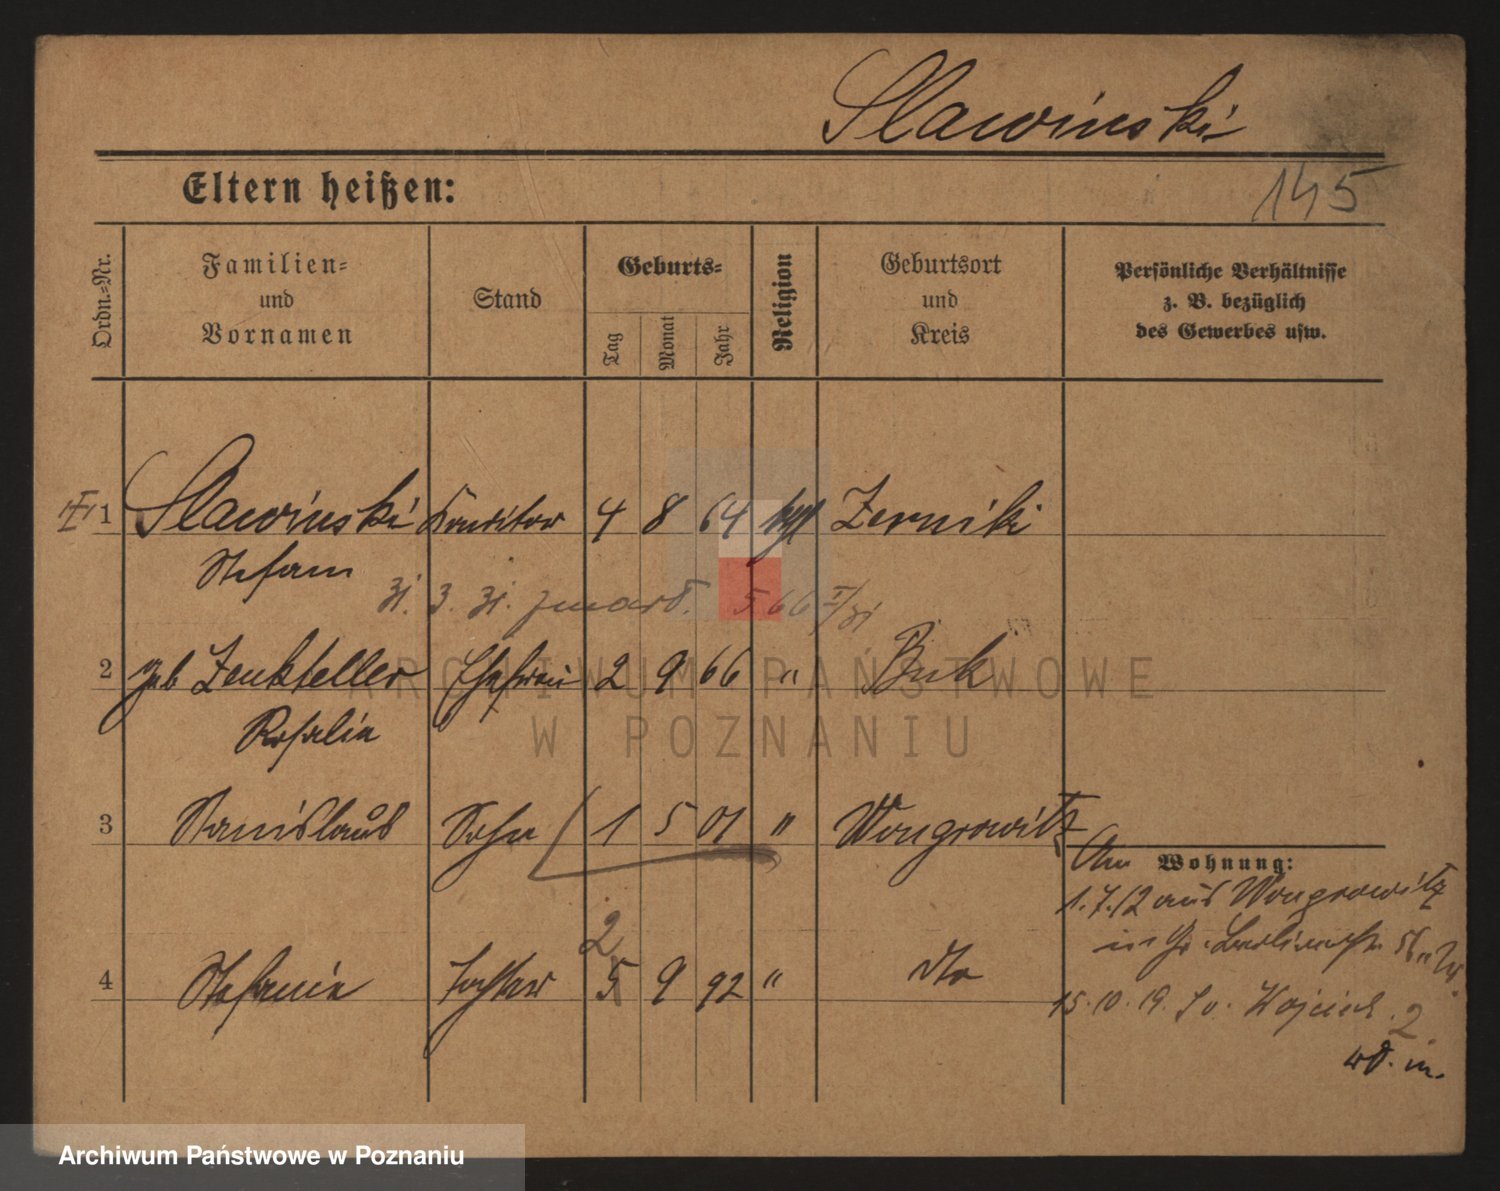 Slawinski
Eltern heißen:
145
Ordn.-Nr.
Familien-
und
Vornamen
Stand
Geburts-
Tag
Monat
Jahr
Religion
Geburtsort
und
Kreis
Persönliche Verhältnisse
z. B. bezüglich
des Gewerbes usw.
1 Slawinski Konditor 4 8 64 kath Zerniki
Stefan
3. zmarł. 566
2 geb Zenkteller Ehefrau 2 9 66 " Buk
Rosalie
3 Stanislaus Sohn 1 5 01 " Wongrowitz
Am Wohnung:
1.7.12 aus Wongrowitz
in Gr. Berlinerstr. 56
2
4 Stefanie Tochter 5 9 92 " dto
15.10.19. Sw. Wojciech. 2
ARCHIWUM PAŃSTWOWE
W POZNANIU
Archiwum Państwowe w Poznaniu